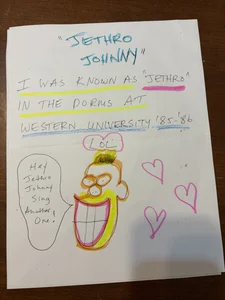 "JETHRO
JOHNNY"
I WAS KNOWN AS "JETHRO"
IN THE DORMS AT
WESTERN UNIVERSITY '85-'86
LOL
Hey
Jethro
Johnny
Sing
Another
One!